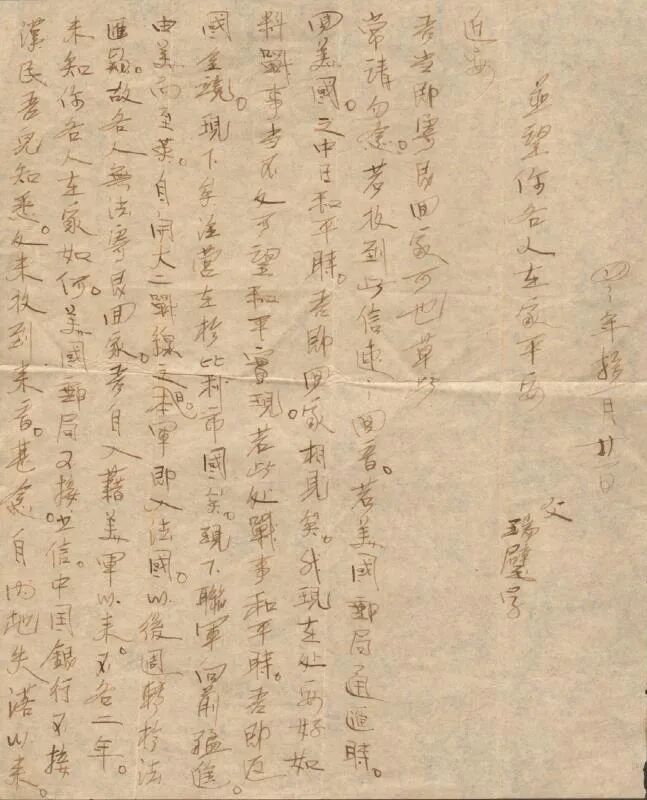 漢民吾兒知悉。久未收到来音。甚念自內地失落以来。
未知你各人在家如何。美國郵局不接信。中国銀行不接
匯欵。故各人無法寄艮回家。吾自入藉美軍以来。不各二年。
由美而至英。自開大二戰線之日。本軍即入法國。以後週轉於法
國全境。現下矣注營在於比利市國矣。現下聯軍向前猛進。
料戰事当不久可望和平實現。若此处戰事和平時。吾即返
回美國。之中日和平時。吾即回家相見矣。我現在处安好如
常請勿念。若收到此信速之回音。若美國郵局通匯時。
吾当即寄艮回家可也草此
近安
並望你各人在家平安
父 瑞璧字
年拾月廿日